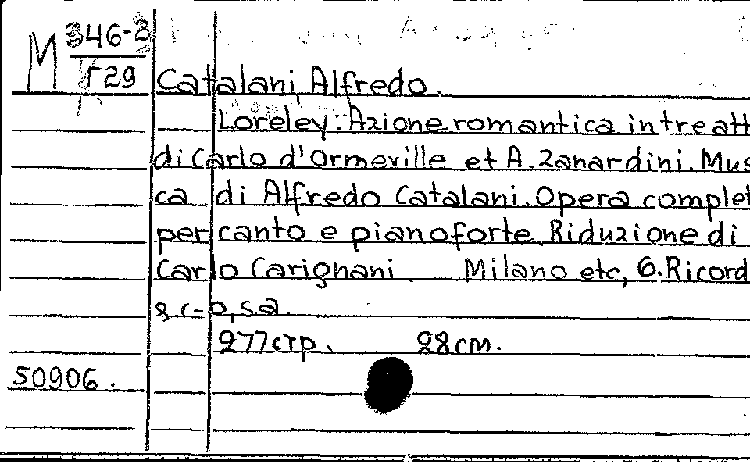 M 346-3
r29
Catalani, Alfredo.
Loreley. Azione romantica in tre att
di Carlo d'Ormeville et A. Zanardini. Mus
ca di Alfredo Catalani. Opera complet
per canto e pianoforte. Riduzione di
Carlo Carignani Milano etc, G. Ricord
277 стр. 28 cm.
50906.